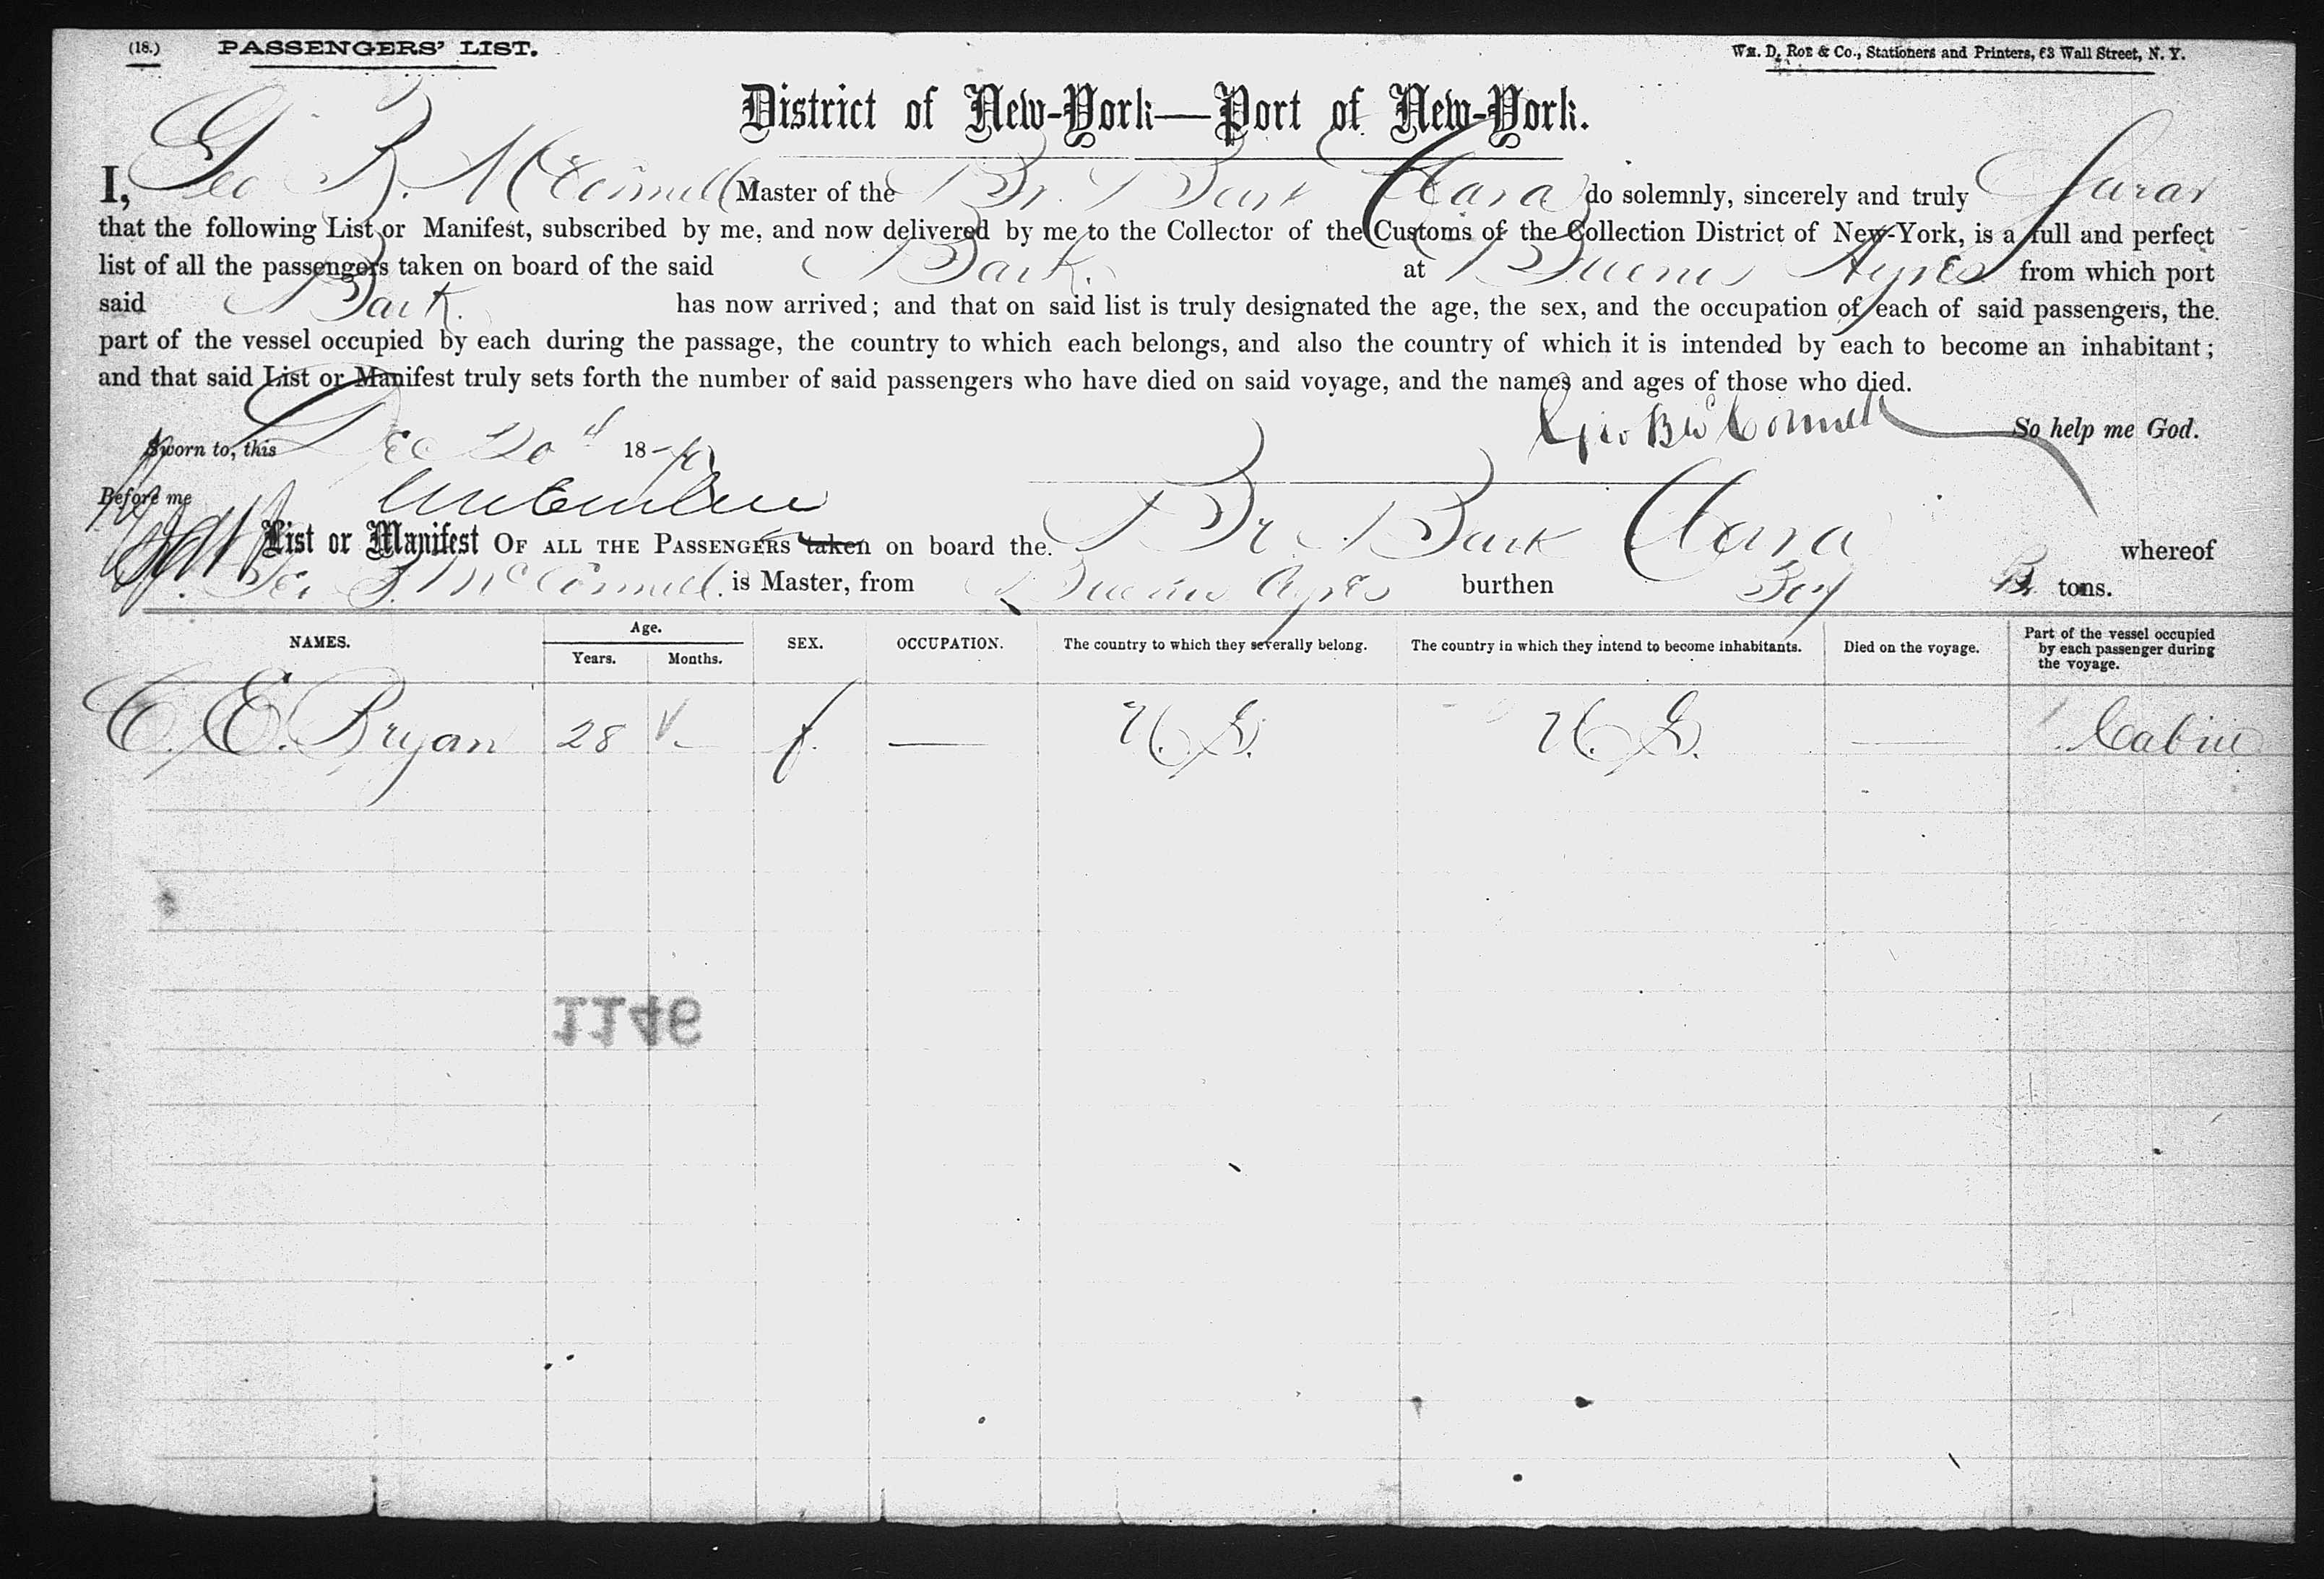 (18.) PASSENGERS' LIST. Wm. D. Roe & Co., Stationers and Printers, 63 Wall Street, N. Y.
District of New-York—Port of New-York.
I, Geo B. McConnell Master of the Br. Bark Clara do solemnly, sincerely and truly Swear
that the following List or Manifest, subscribed by me, and now delivered by me to the Collector of the Customs of the Collection District of New-York, is a full and perfect
list of all the passengers taken on board of the said Bark. at Buenos Ayres from which port
said Bark. has now arrived; and that on said list is truly designated the age, the sex, and the occupation of each of said passengers, the
part of the vessel occupied by each during the passage, the country to which each belongs, and also the country of which it is intended by each to become an inhabitant;
and that said List or Manifest truly sets forth the number of said passengers who have died on said voyage, and the names and ages of those who died.
Geo B McConnell So help me God.
Sworn to, this Dec 20 18
Before me
List or Manifest OF ALL THE PASSENGERS taken on board the Br Bark Clara whereof
Geo B. McConnell. is Master, from Buenos Ayres burthen tons.
NAMES. Age. Years. Months. SEX. OCCUPATION. The country to which they severally belong. The country in which they intend to become inhabitants. Died on the voyage. Part of the vessel occupied by each passenger during the voyage.
C. E. Bryan 28 f. — U. S. U. S. — Cabin
1146